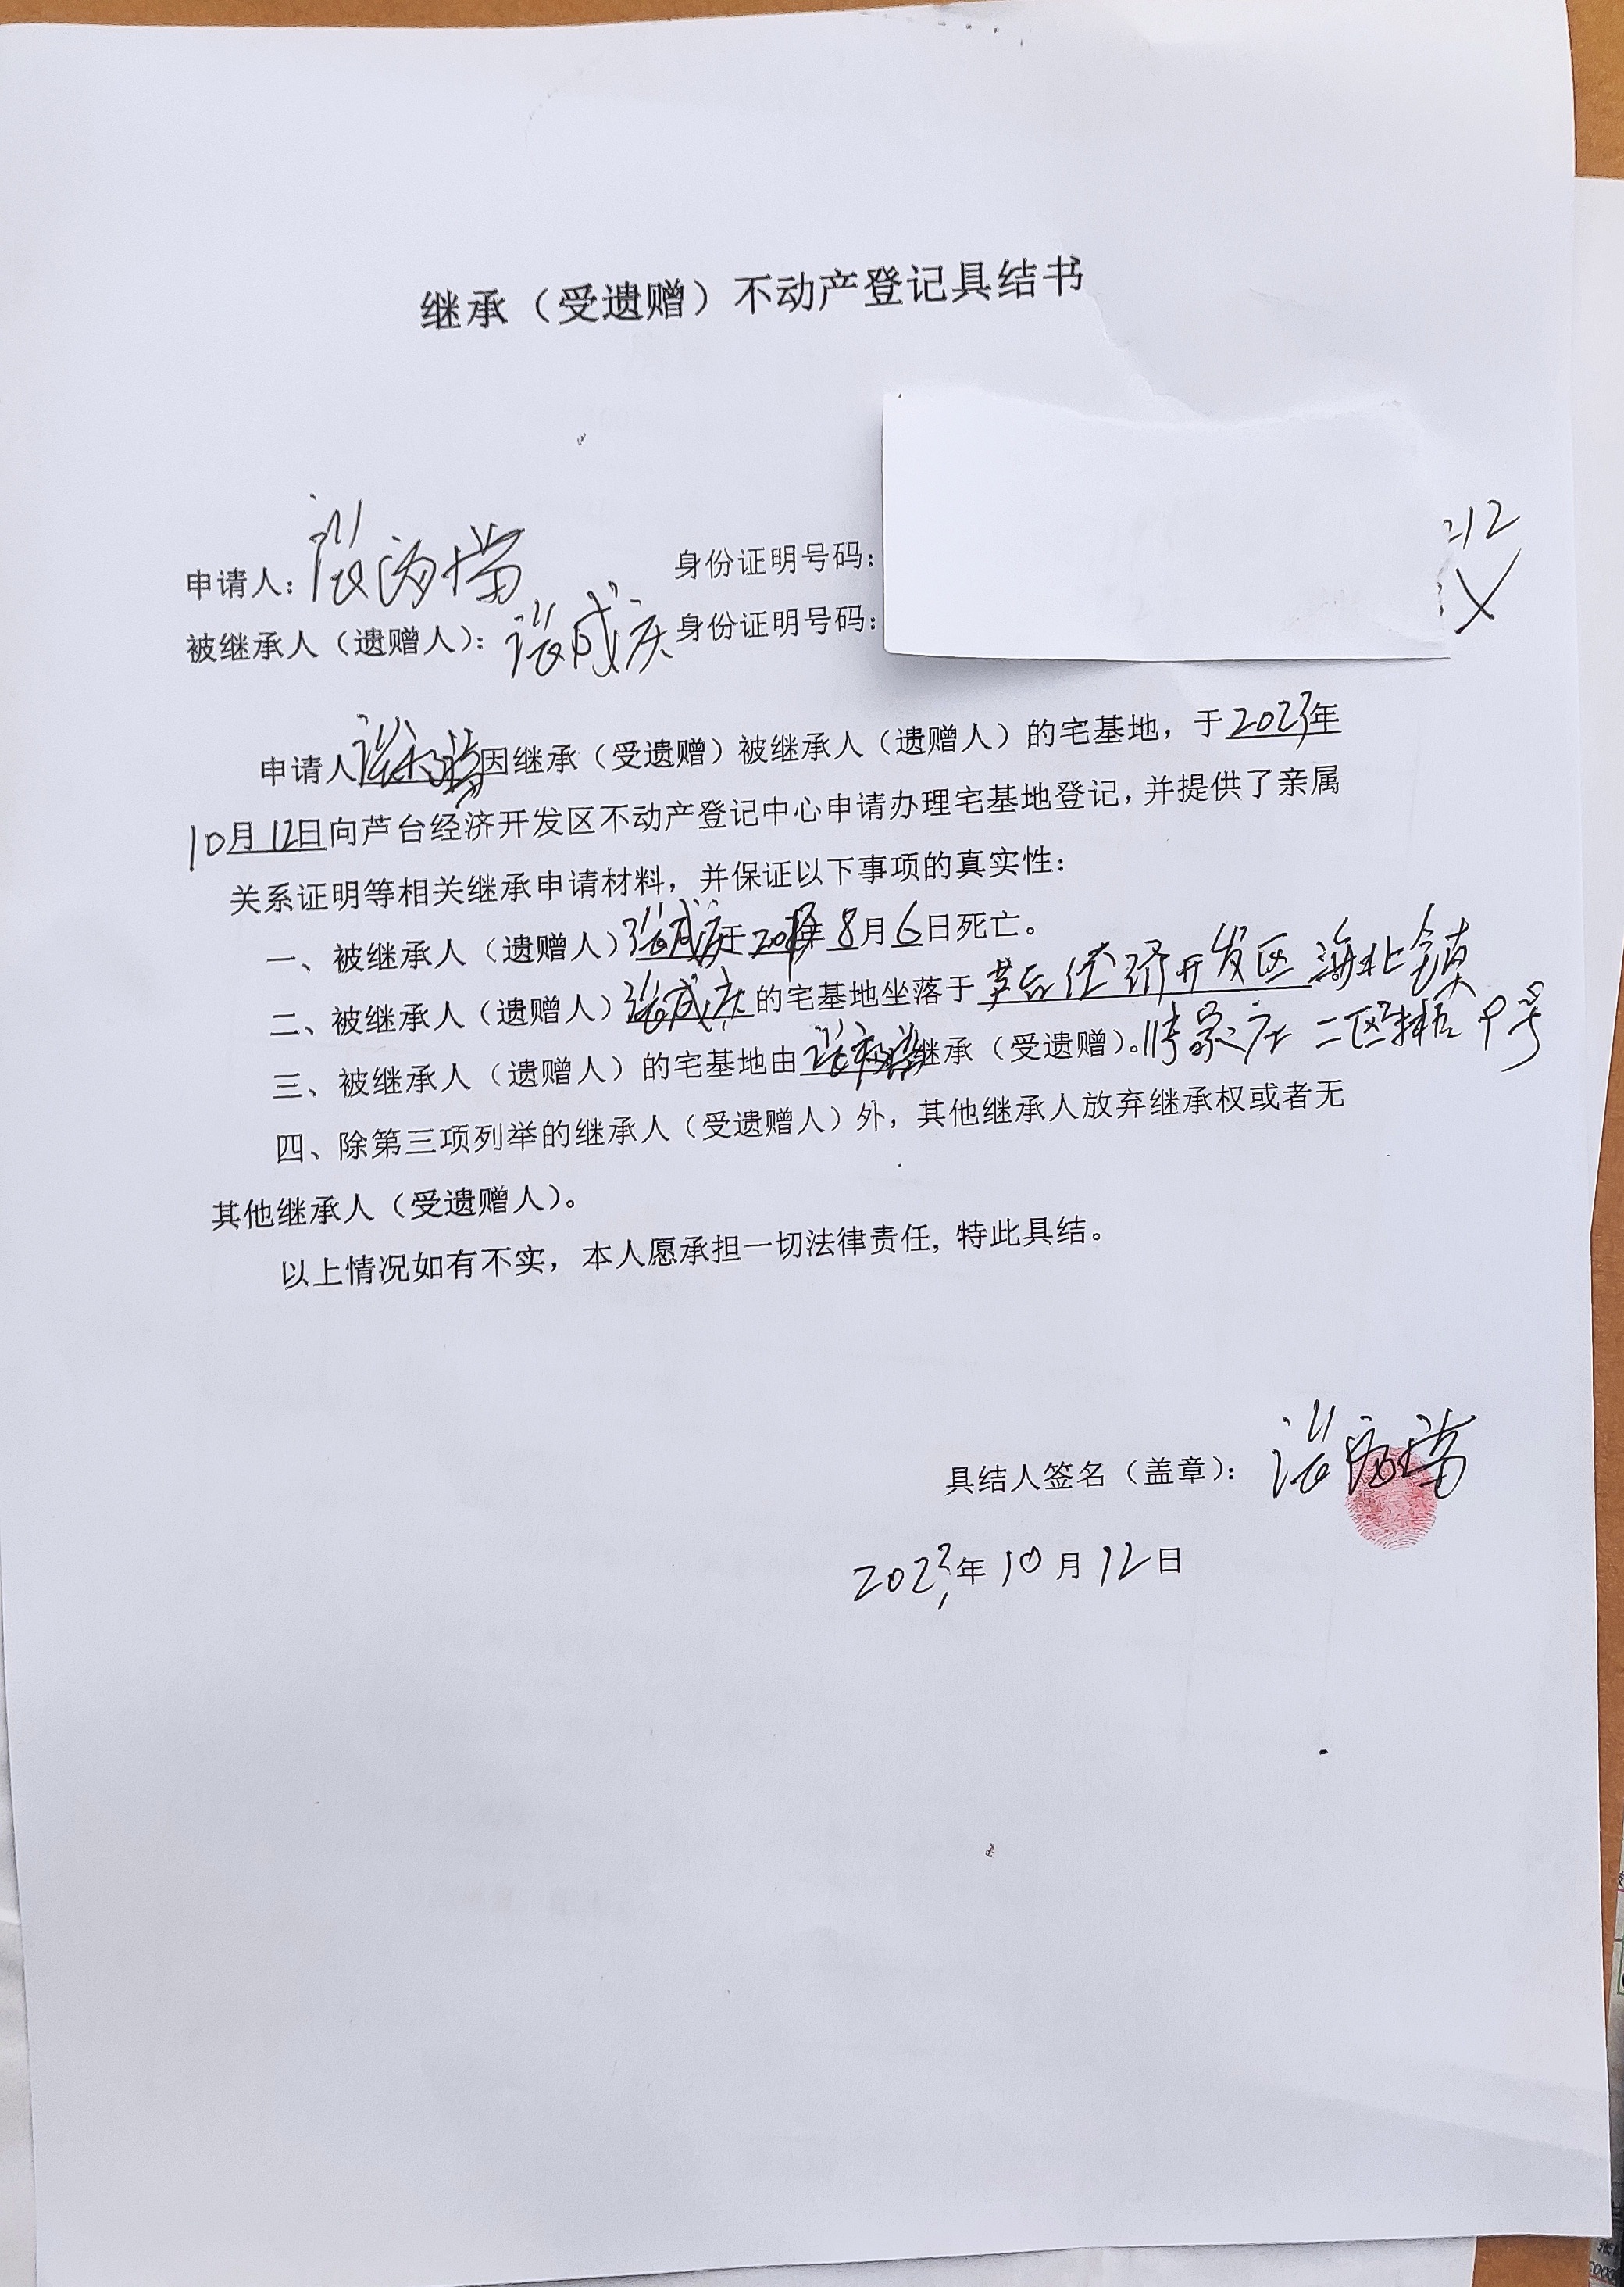 继承（受遗赠）不动产登记具结书
申请人： 身份证明号码： 212
被继承人（遗赠人）：张成庆 身份证明号码： X
申请人 因继承（受遗赠）被继承人（遗赠人）的宅基地，于2023年
10月12日向芦台经济开发区不动产登记中心申请办理宅基地登记，并提供了亲属
关系证明等相关继承申请材料，并保证以下事项的真实性：
一、被继承人（遗赠人）张成庆于 年8月6日死亡。
二、被继承人（遗赠人）张成庆的宅基地坐落于芦台经济开发区海北镇
三、被继承人（遗赠人）的宅基地由 继承（受遗赠）。 家庄二区 号
四、除第三项列举的继承人（受遗赠人）外，其他继承人放弃继承权或者无
其他继承人（受遗赠人）。
以上情况如有不实，本人愿承担一切法律责任，特此具结。
具结人签名（盖章）：
2023年10月12日